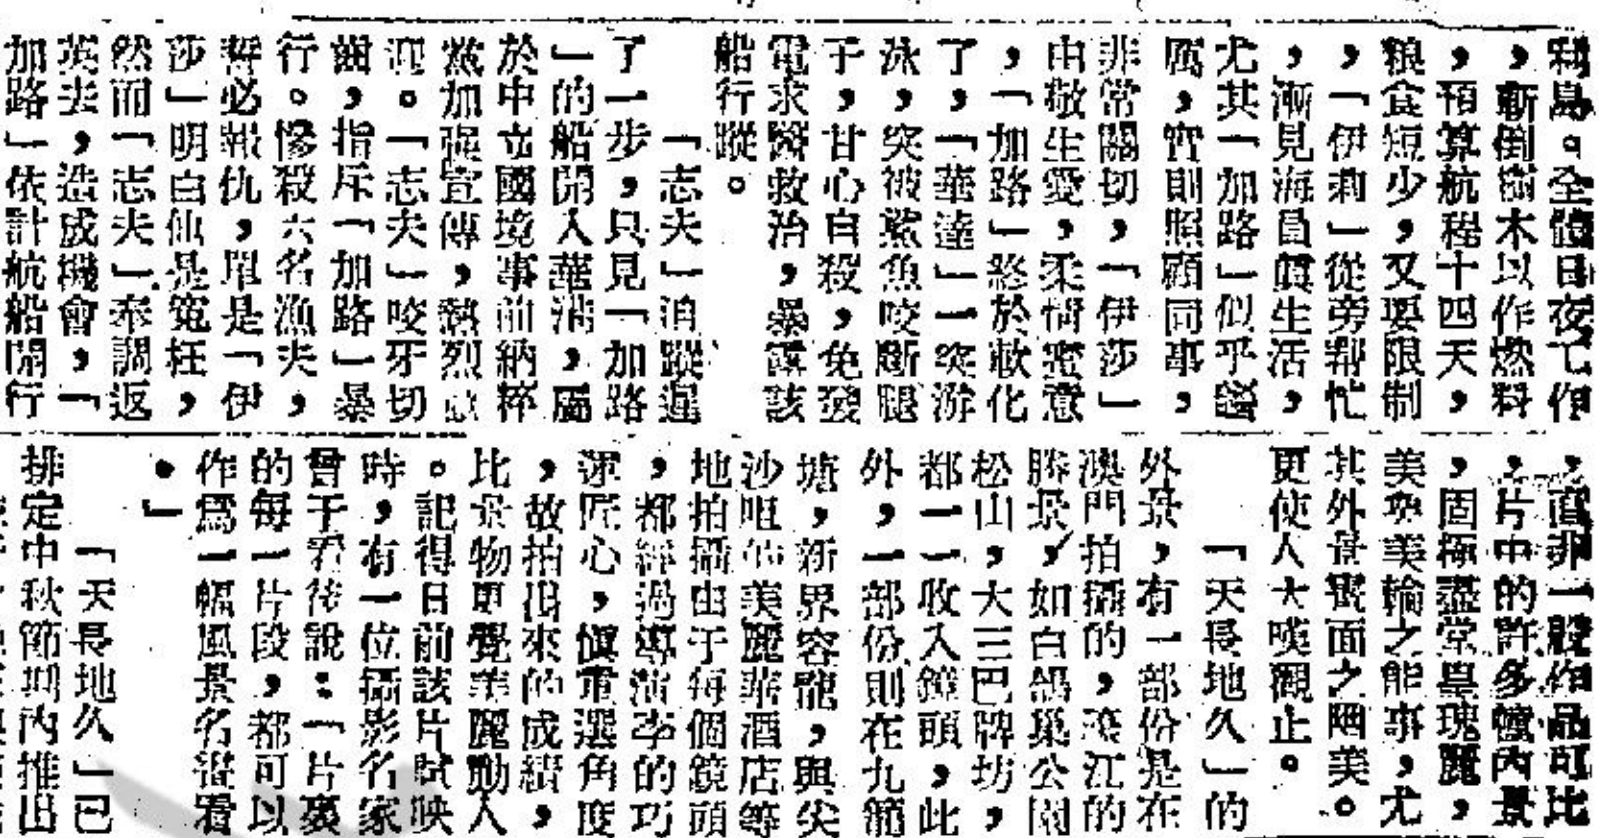 利島。全體日夜工作
，斬倒樹木以作燃料
，預算航程十四天，
粮食短少，又要限制
，「伊莉」從旁幫忙
，漸見海員眞生活，
尤其「加路」似乎
厲，實則照顧同事，
非常關切，「伊莎」
由敬生愛，柔情蜜意
，「加路」終於軟化
了，「華達」一突游
泳，突被鯊魚咬斷腿
于，甘心自殺，免發
電求醫救治，暴露該
船行蹤。
「志夫」追蹤遲
了一步，只見「加路
」的船開入華港，屬
於中立國境事前納粹
黨加强宣傳，熱烈歡
迎。「志夫」咬牙切
齒，指斥「加路」暴
行。慘殺六名漁夫，
誓必報仇，單是「伊
莎」明白他是冤枉，
然而「志夫」奉調返
英去，造成機會，「
加路」依計航船開行
，直非一般作品可比
，片中的許多幢內景
，固極盡堂皇瑰麗，
美奐美輪之能事，尤
其外景畫面之幽美。
更使人大嘆觀止。
「天長地久」的
外景，有一部份是在
澳門拍攝的，濠江的
勝景，如白鴿巢公園
松山，大三巴牌坊，
都一一收入鏡頭，此
外，一部份則在九龍
塘，新界容龍，與尖
沙咀的美麗華酒店等
地拍攝由于每個鏡頭
，都經過導演李的巧
深匠心，愼重選角度
，故拍出來的成績，
比景物更覺美麗動人
。記得日前該片試映
時，有一位攝影名家
曾于看後說：「片裏
的每一片段，都可以
作爲一幅風景名畫看
。」
「天長地久」已
排定中秋節期內推出